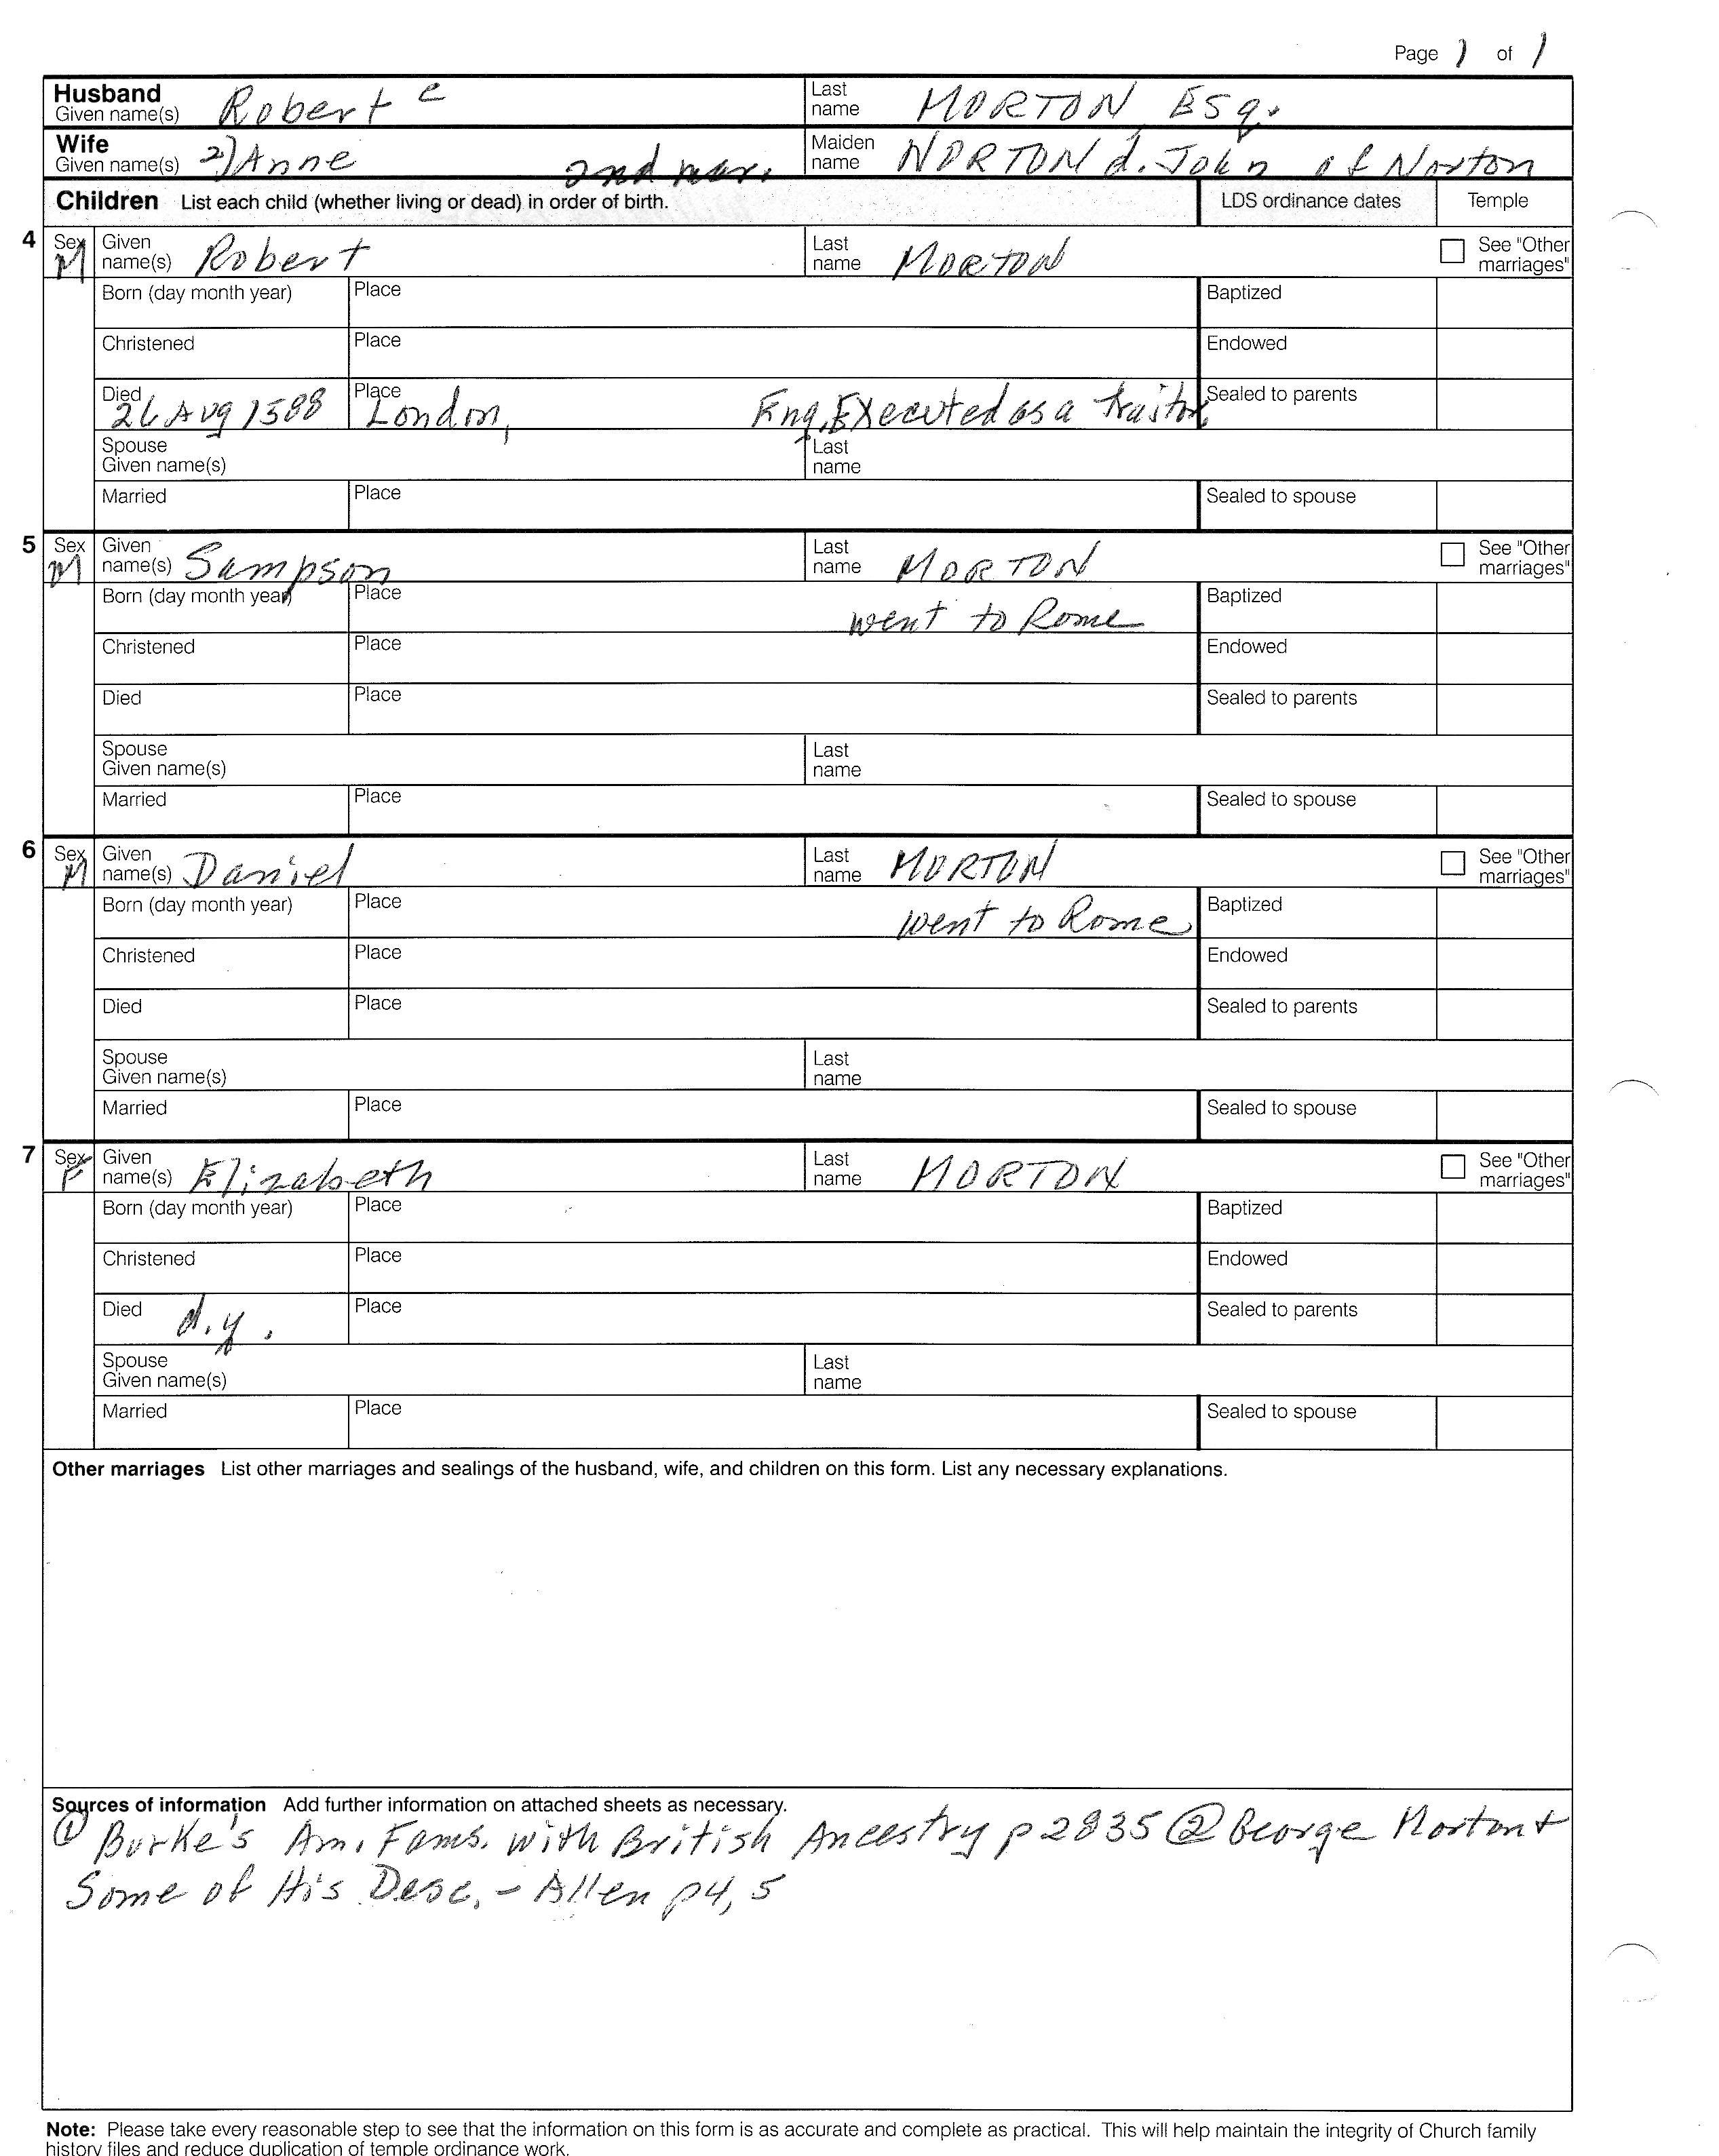 Page 1 of 1
Husband Given name(s) Robert e Last name MORTON Esq.
Wife Given name(s) 2) Anne 2nd mar. Maiden name NORTON d. John of Norton
Children List each child (whether living or dead) in order of birth. LDS ordinance dates Temple
4 Sex M Given name(s) Robert Last name MORTON See "Other marriages"
Born (day month year) Place Baptized
Christened Place Endowed
Died 26 Aug 1588 Place London, Eng. Executed as a traitor Sealed to parents
Spouse Given name(s) Last name
Married Place Sealed to spouse
5 Sex M Given name(s) Sampson Last name MORTON See "Other marriages"
Born (day month year) Place went to Rome Baptized
Christened Place Endowed
Died Place Sealed to parents
Spouse Given name(s) Last name
Married Place Sealed to spouse
6 Sex M Given name(s) Daniel Last name MORTON See "Other marriages"
Born (day month year) Place went to Rome Baptized
Christened Place Endowed
Died Place Sealed to parents
Spouse Given name(s) Last name
Married Place Sealed to spouse
7 Sex F Given name(s) Elizabeth Last name MORTON See "Other marriages"
Born (day month year) Place Baptized
Christened Place Endowed
Died d.y. Place Sealed to parents
Spouse Given name(s) Last name
Married Place Sealed to spouse
Other marriages List other marriages and sealings of the husband, wife, and children on this form. List any necessary explanations.
Sources of information Add further information on attached sheets as necessary.
① Burke's Am. Fams. with British Ancestry p 2835 ② George Morton +
Some of His Desc. - Allen p4, 5
Note: Please take every reasonable step to see that the information on this form is as accurate and complete as practical. This will help maintain the integrity of Church family
history files and reduce duplication of temple ordinance work.